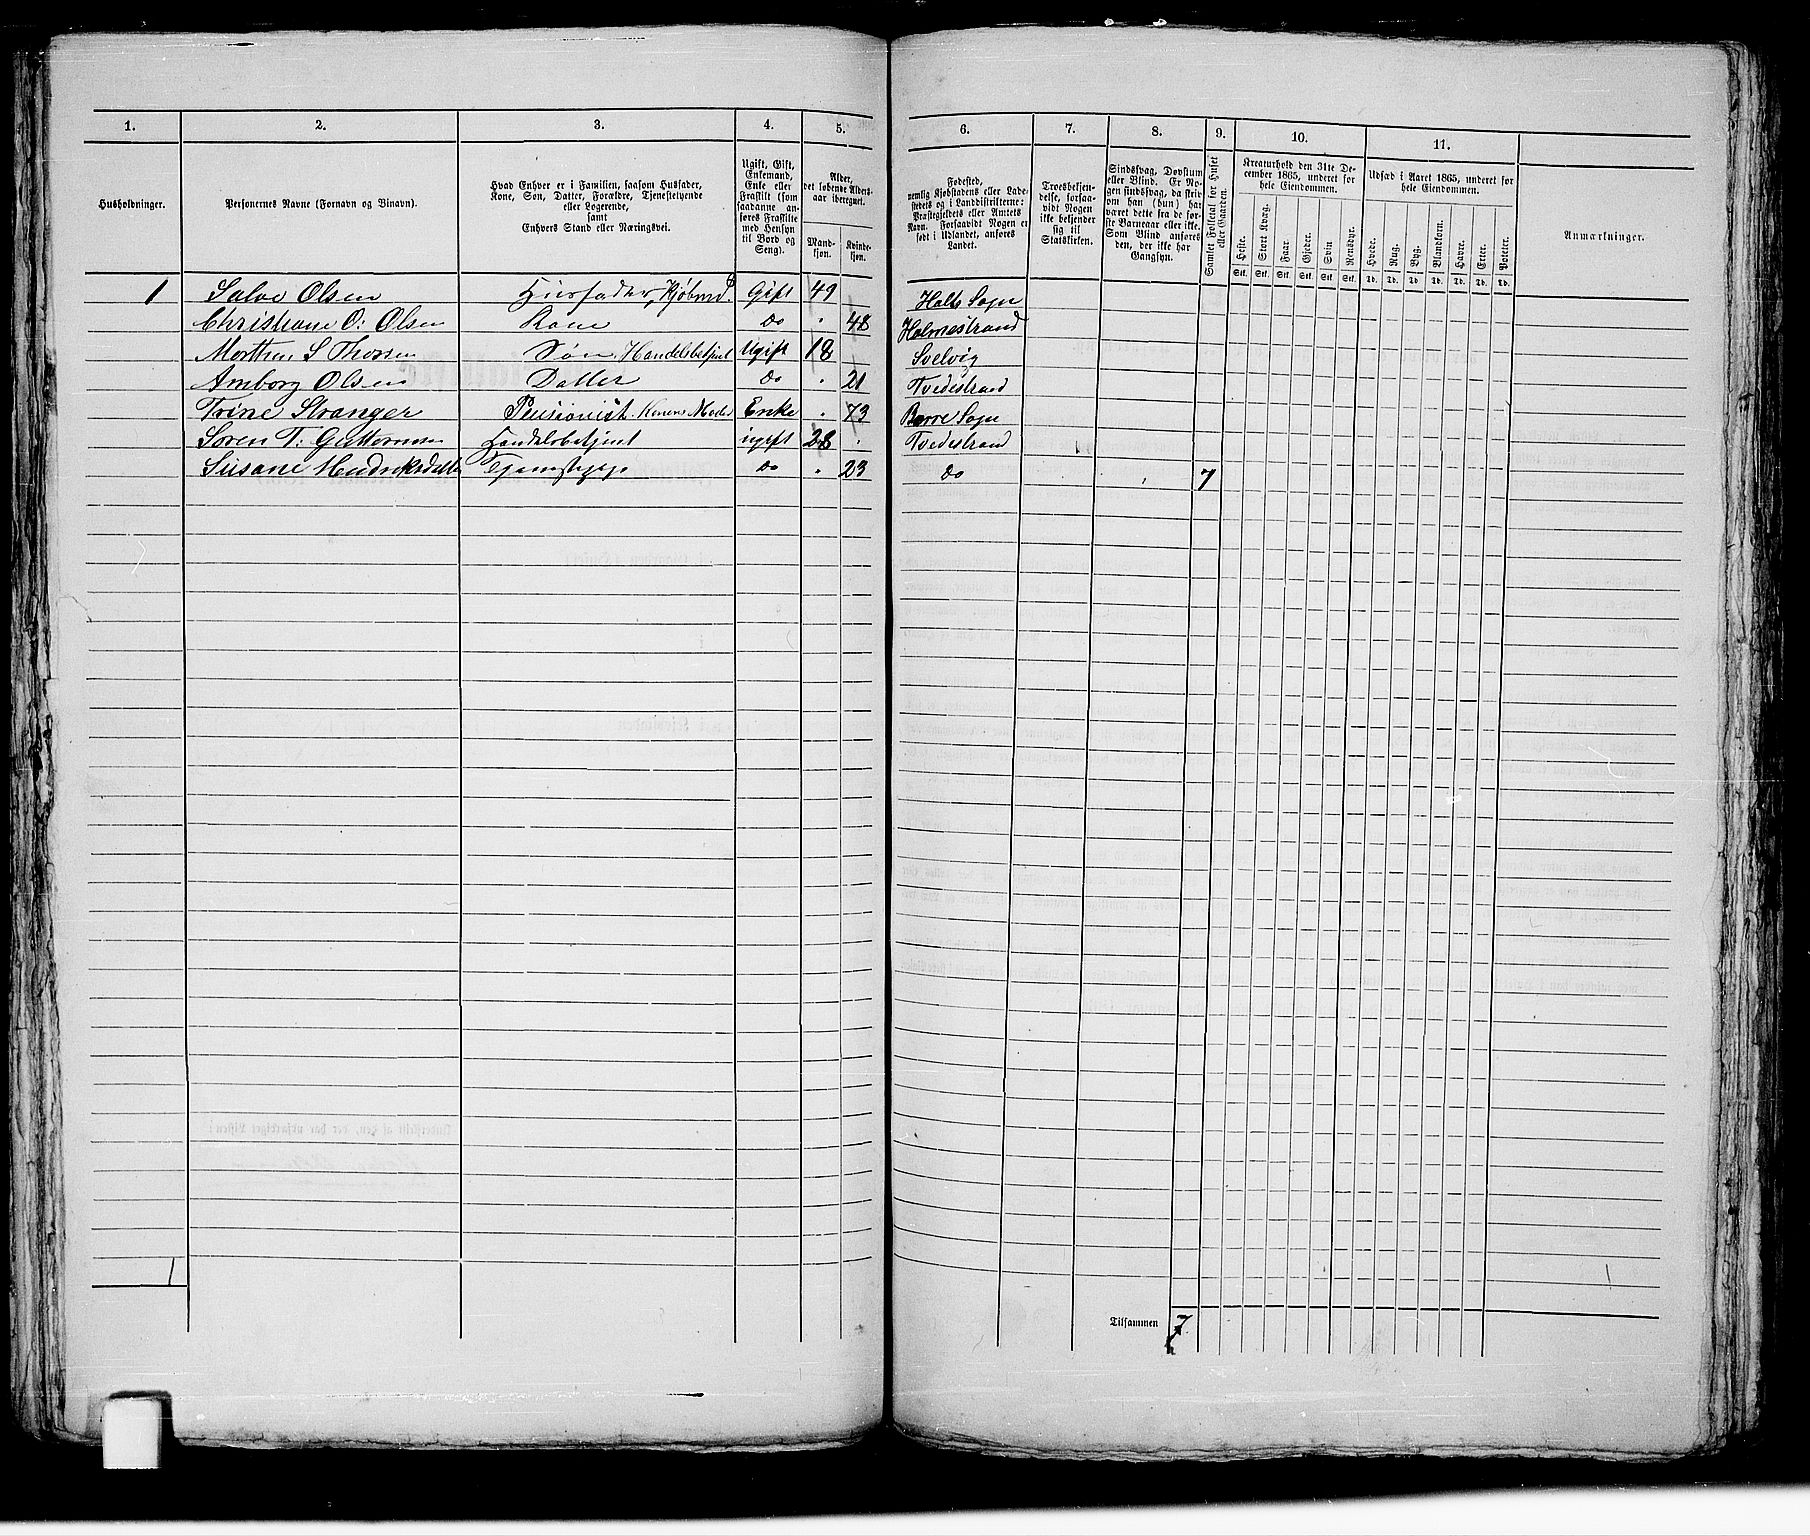 1. 2. 3. 4. 5. 6. 7. 8. 9. 10. 11.
Husholdninger.
Personernes Navne (Fornavn og Binavn).
Hvad Enhver er i Familien, saasom Husfader,
Kone, Søn, Datter, Forældre, Tjenestetyende
eller Logerende,
samt
Enhvers Stand eller Næringsvei.
Ugift, Gift,
Enkemand,
Enke eller
Fraskilt (som
saadanne an-
føres Fraskilte
med Hensyn
til Bord og
Seng).
Alder,
det løbende Alders-
aar iberegnet.
Mand-
kjøn.
Kvinde-
kjøn.
Fødested,
nemlig Kjøbstadens eller Lade-
stedets og i Landdistrikterne:
Præstegjeldets eller Amtets
Navn. Forsaavidt Nogen er
født i Udlandet, anføres
Landet.
Troesbekjen-
delse, forsaa-
vidt Nogen
ikke bekjender
sig til
Statskirken.
Sindssvag, Døvstum
eller Blind. Er No-
gen sindssvag, da skriv
om han (hun) har
været dette fra de før-
ste Barneaar eller ikke.
Som Blind anføres
den, der ikke har
Gangsyn.
Samlet Folketal for Huset
eller Gaarden.
Kreaturhold den 31te De-
cember 1865, underet for
hele Eiendommen.
Heste. Stort Kvæg. Faar. Gjeder. Svin Rensdyr.
Stk. Stk. Stk. Stk. Stk. Stk.
Udsæd i Aaret 1865, underet for
hele Eiendommen.
Hvede. Rug. Byg. Blandkorn. Havre. Erter. Poteter.
Td. Td. Td. Td. Td. Td. Td.
Anmærkninger.
1 Salve Olsen Huusfader, Kjøbmd. Gift 49 Holts Sogn
Christiane O: Olsen Kone do " 48 Holmestrand
Morthen S Thorsen Søn, Handelsbetjent Ugift 18 Svelvig
Amborg Olsen Datter do " 21 Tvedestrand
Trine Stranger Pensionist. Konens Moder Enke " 73 Borre Sogn
Søren T: Guttormsen Handelsbetjent ugift 28 Tvedestrand
Susane Hendriksdatter Tjenestepige do " 23 do 7
1
Tilsammen 7